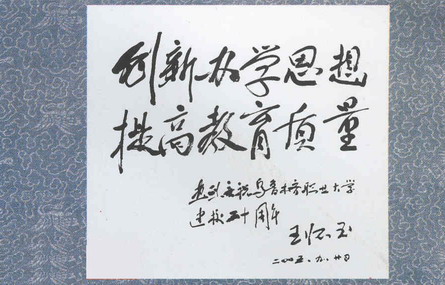 创新办学思想
提高教育质量
热烈庆祝乌鲁木齐职业大学
建校五十周年
王怀玉
二〇〇五.九.廿日